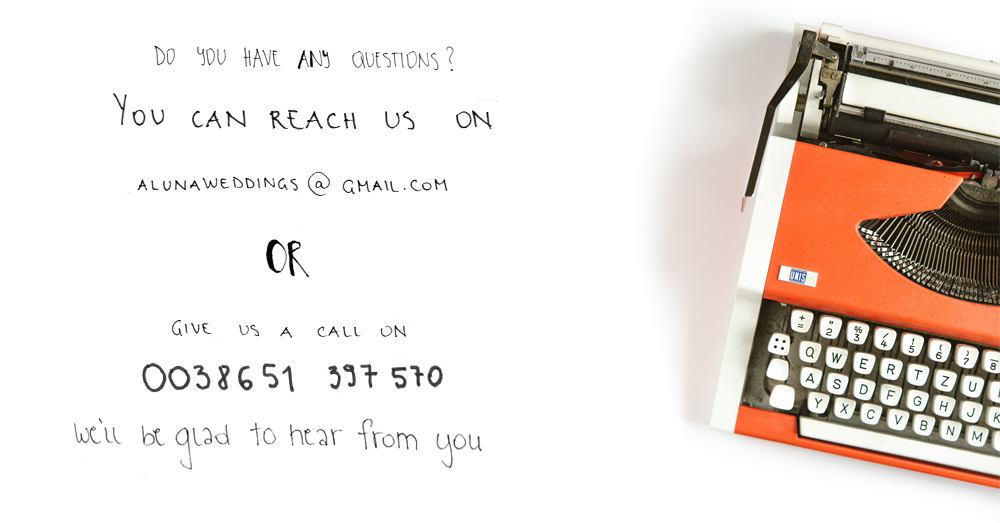 DO YOU HAVE ANY QUESTIONS?
YOU CAN REACH US ON
ALUNAWEDDINGS@GMAIL.COM
OR
GIVE US A CALL ON
0038651 397 570
we'll be glad to hear from you
UNIS
+ " % / ! ( ) _
= 2 3 4 5 6 7 8
Q W E R T Z U
A S D F G H J K
Y X C V B N M